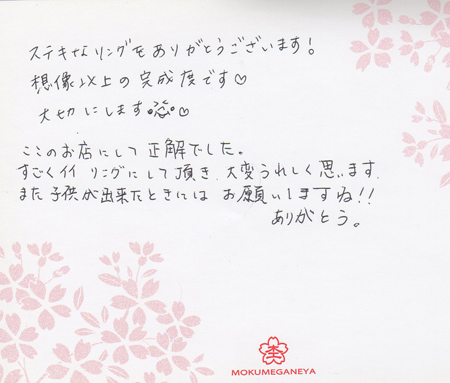 ステキなリングをありがとうございます!
想像以上の完成度です♡
大切にします♡
ここのお店にして正解でした。
すごくイイ リングにして頂き、大変うれしく思います。
また子供が出来たときには お願いしますね!!
ありがとう。
MOKUMEGANEYA